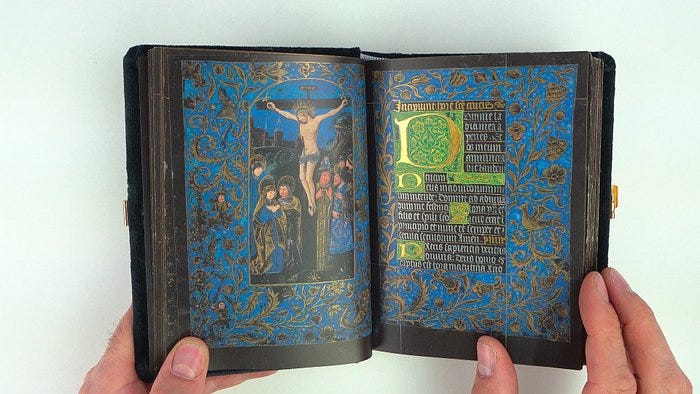 Incipiunt hore sce crucis
Domine la
bia mea a
peries. Et
os meum
annuncia
bit laudem
tuam
Deus in adiutorium meum
intende. Domine ad adiuua
dum me festina. Gloria pri et
filio et spui sco. Sicut erat i
principio et nunc et semper et
secula seculorum Amen.
Patris sapiencia ueritas
diuina. deus homo
captus est hora matutina. A suo